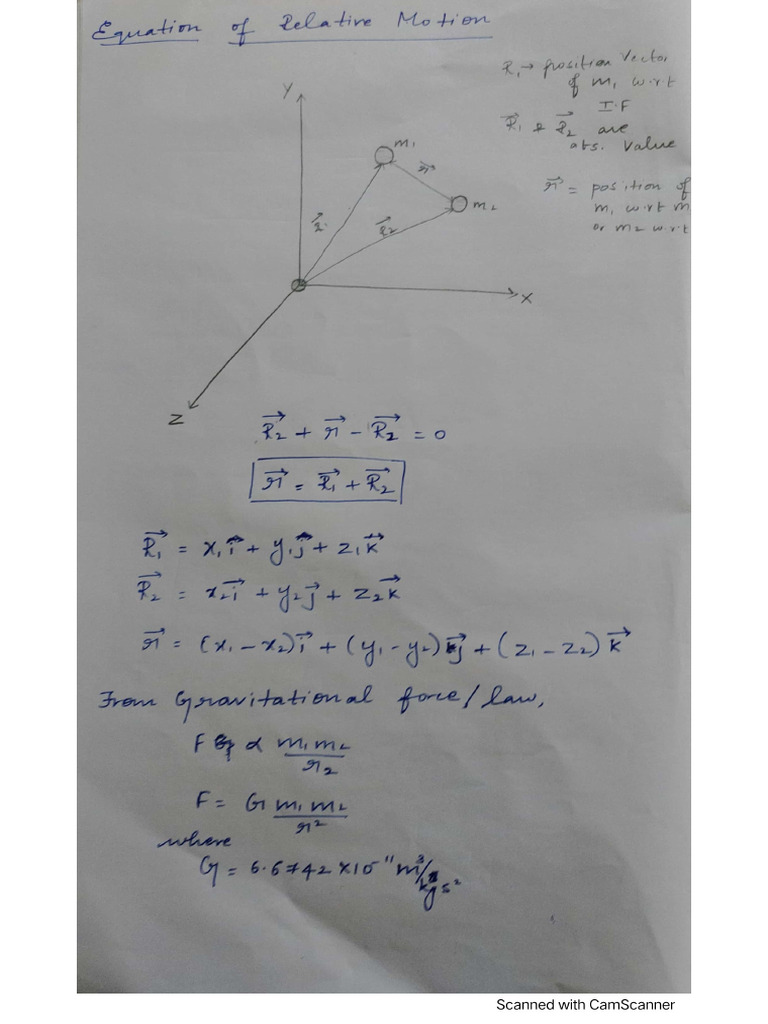 Equation of Relative Motion
R₁ → position Vector
of m₁ w.r.t
I.F
R⃗₁ & R⃗₂ are
abs. Value
r⃗ = position of
m₁ w.r.t m
or m₂ w.r.t
Y
m₁
r⃗
m₂
R⃗₂
X
Z
R⃗₂ + r⃗ - R⃗₂ = 0
r⃗ = R⃗₁ + R⃗₂
R⃗₁ = x₁i⃗ + y₁j⃗ + z₁k⃗
R⃗₂ = x₂i⃗ + y₂j⃗ + z₂k⃗
r⃗ = (x₁ - x₂)i⃗ + (y₁ - y₂)j⃗ + (z₁ - z₂)k⃗
From Gravitational force/law,
F ∝ m₁m₂/r₂
F = G m₁m₂/r²
where
G = 6.6742 × 10⁻¹¹ m³/kg s²
Scanned with CamScanner